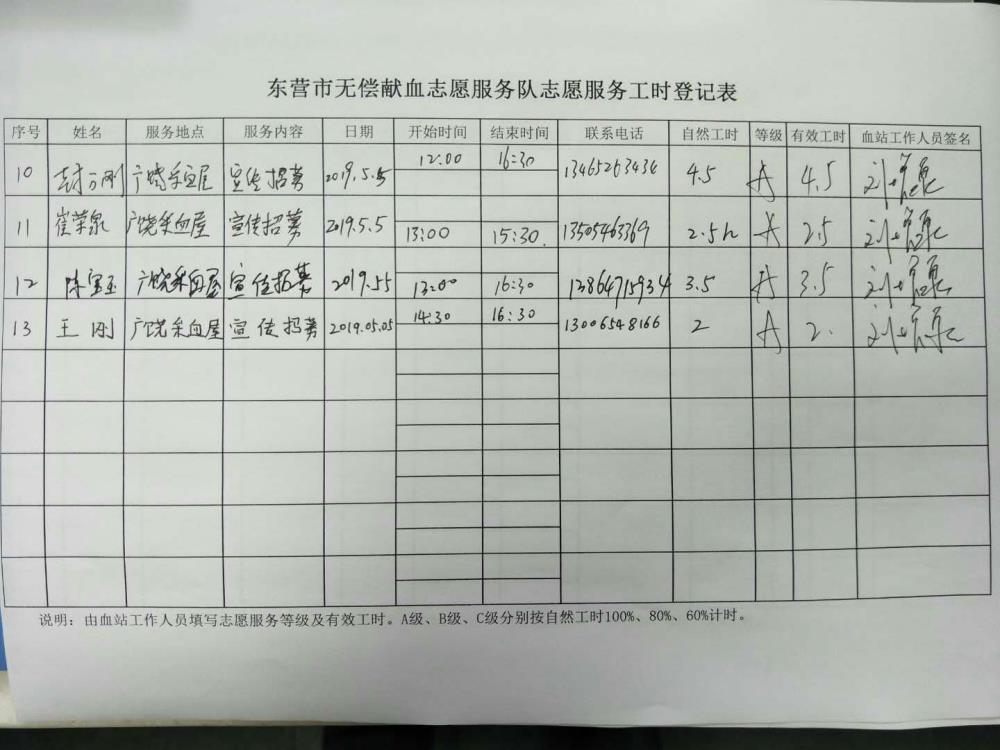 东营市无偿献血志愿服务队志愿服务工时登记表
序号 姓名 服务地点 服务内容 日期 开始时间 结束时间 联系电话 自然工时 等级 有效工时 血站工作人员签名
10 刚 广饶采血屋 宣传招募 2019.5.5 12:00 16:30 13465263434 4.5 A 4.5
11 崔荣泉 广饶采血屋 宣传招募 2019.5.5 13:00 15:30. 13505463369 2.5h A 2.5
12 陈宝玉 广饶采血屋 宣传招募 2019.5.5 13:00 16:30 13864715934 3.5 A 3.5
13 王刚 广饶采血屋 宣传招募 2019.05.05 14:30 16:30 13006548166 2 A 2.
说明：由血站工作人员填写志愿服务等级及有效工时。A级、B级、C级分别按自然工时100%、80%、60%计时。